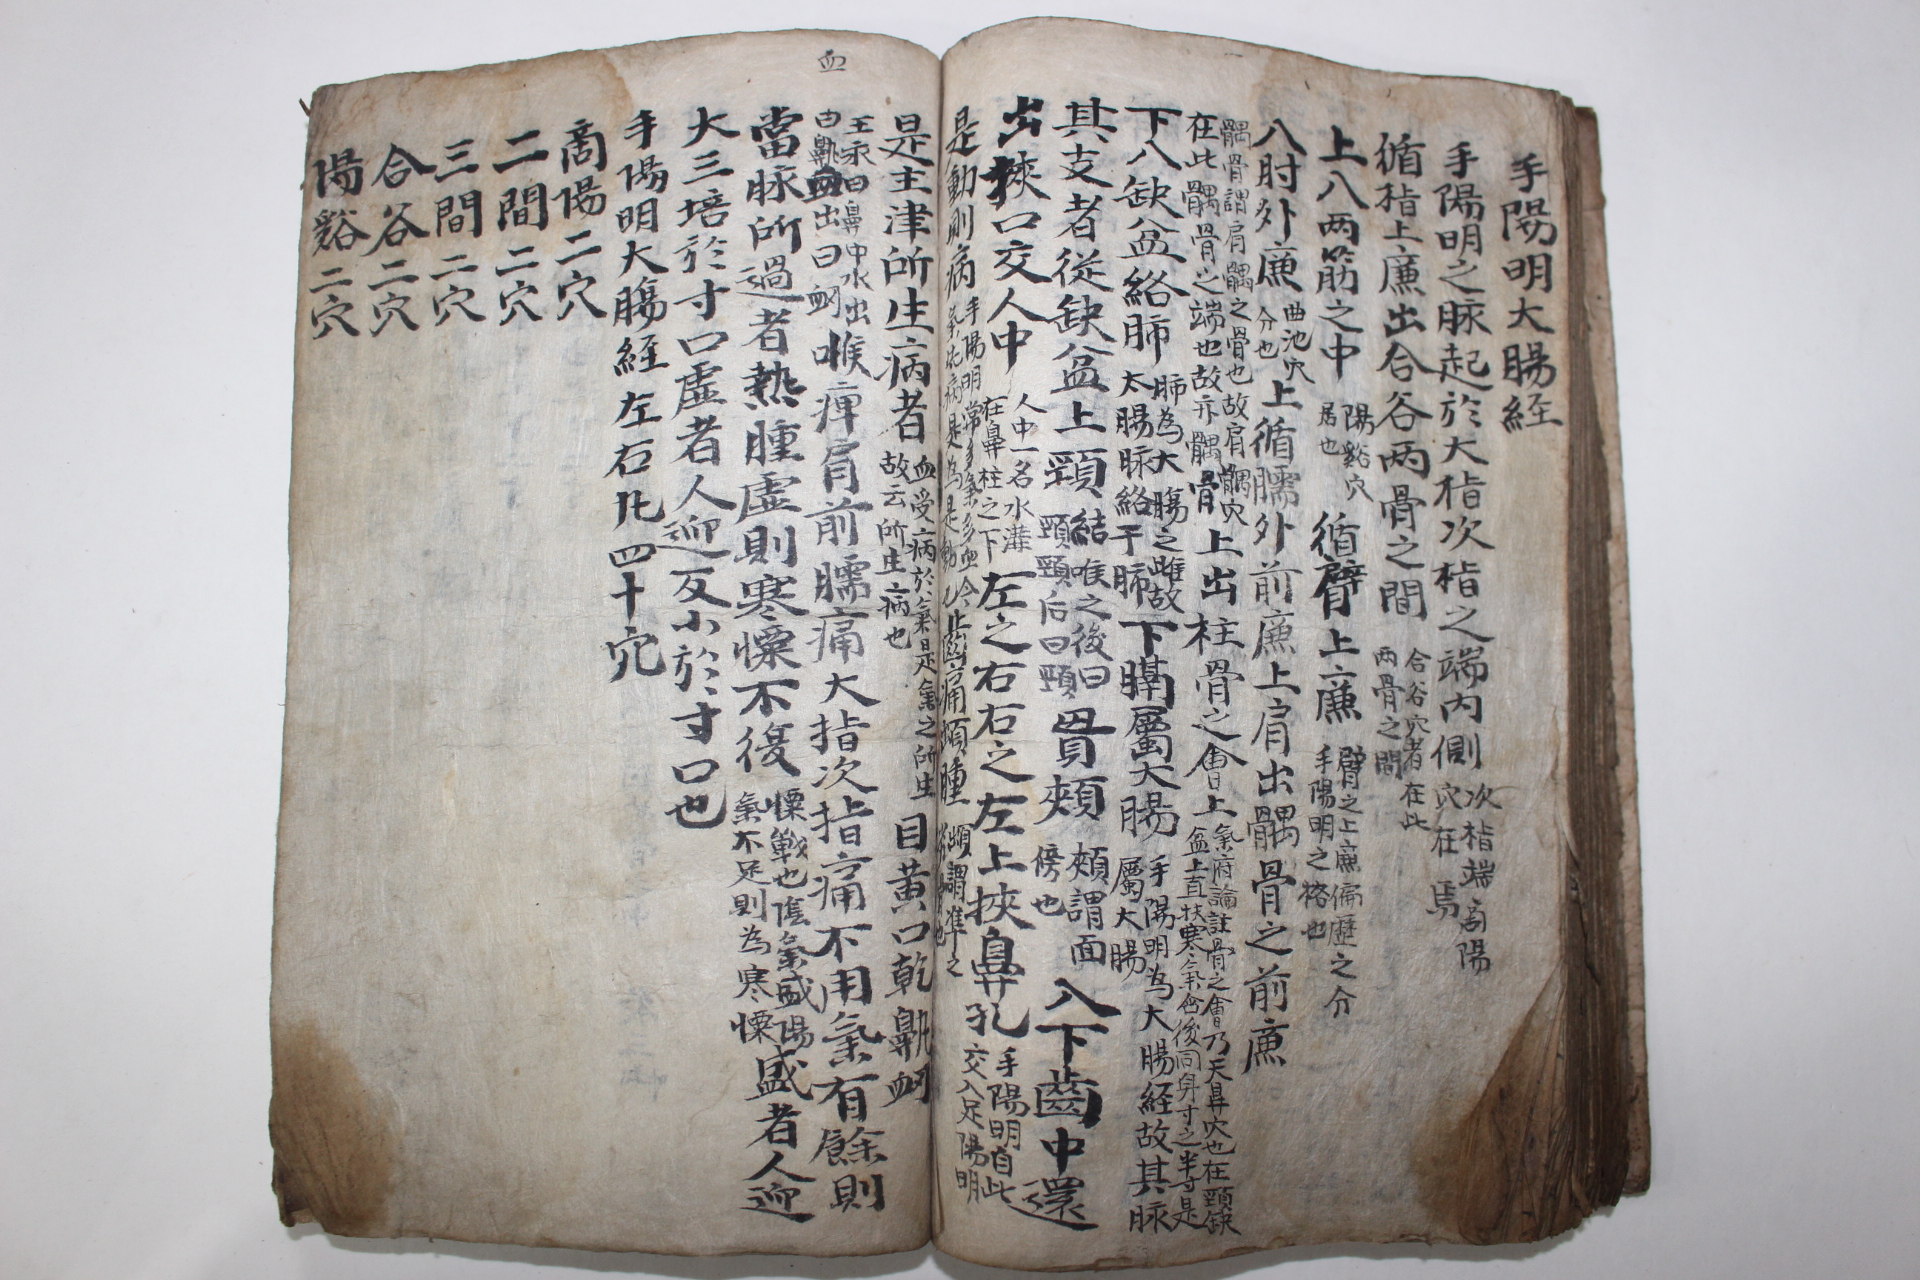 手陽明大腸経
手陽明之脉起於大指次指之端内側 次指端商陽穴在焉
循指上廉出合谷两骨之間 合谷穴者在此两骨之間
上八两筋之中 陽谿穴居也 循臂上廉 臂之上廉偏歴之分手陽明之格也
八肘外廉 曲池穴分也 上循臑外前廉上肩出髃骨之前廉
髃骨謂肩髃之骨也故肩髃穴在此髃骨之端也故亦髃骨 上出柱骨之會上 氣府論註骨之會乃天鼻穴也在頸缺盆上直扶寒氣舍後同身寸之半寸是
下八缺盆絡肺 肺為大腸之雌故太腸脉絡于肺 下膈屬大腸 手陽明為大腸経故其脉屬大腸
其支者従缺盆上頸 結喉之後曰頸頸后曰頸 貫頰 頰謂面傍也 八下齒中還
出挾口交人中 人中一名水溝在鼻柱之下 左之右右之左上挾鼻孔 手陽明自此交入足陽明
是動則病 手陽明常多氣多血今氣先病是為是動也 齒痛䪼腫 䪼謂準之
是主津所生病者 血受病於氣是氣之所生故云所生病也 目黄口乾鼽衄
王氷曰鼻中水出曰鼽血出曰衄 喉痺肩前臑痛大指次指痛不用氣有餘則
血
當脉所過者熱腫虚則寒慄不復 慄戰也陰氣盛陽氣不足則為寒慄 盛者人迎
大三培於寸口虚者人迎反小於寸口也
手陽明大腸経左右凡四十穴
商陽二穴
二間二穴
三間二穴
合谷二穴
陽谿二穴